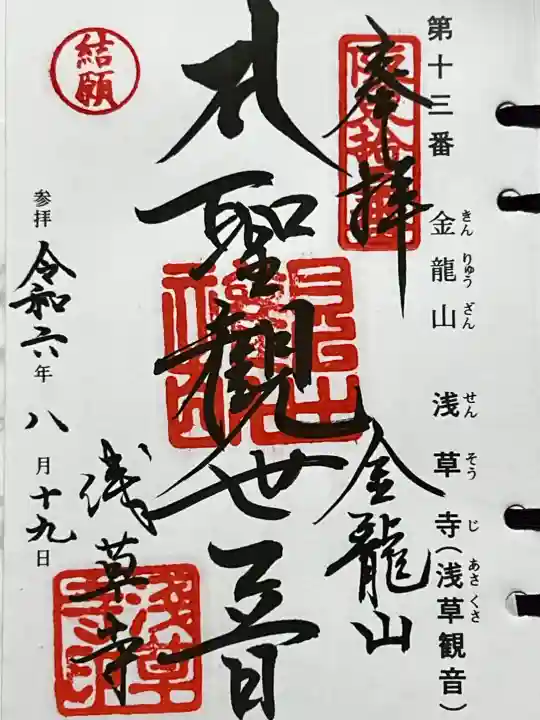 第十三番 金龍山 浅草寺(浅草観音)
きんりゅうざん せんそうじ あさくさ
奉拝
金龍山
札聖觀世音
浅草寺
結願
参拝 令和六年八月十九日
浅草